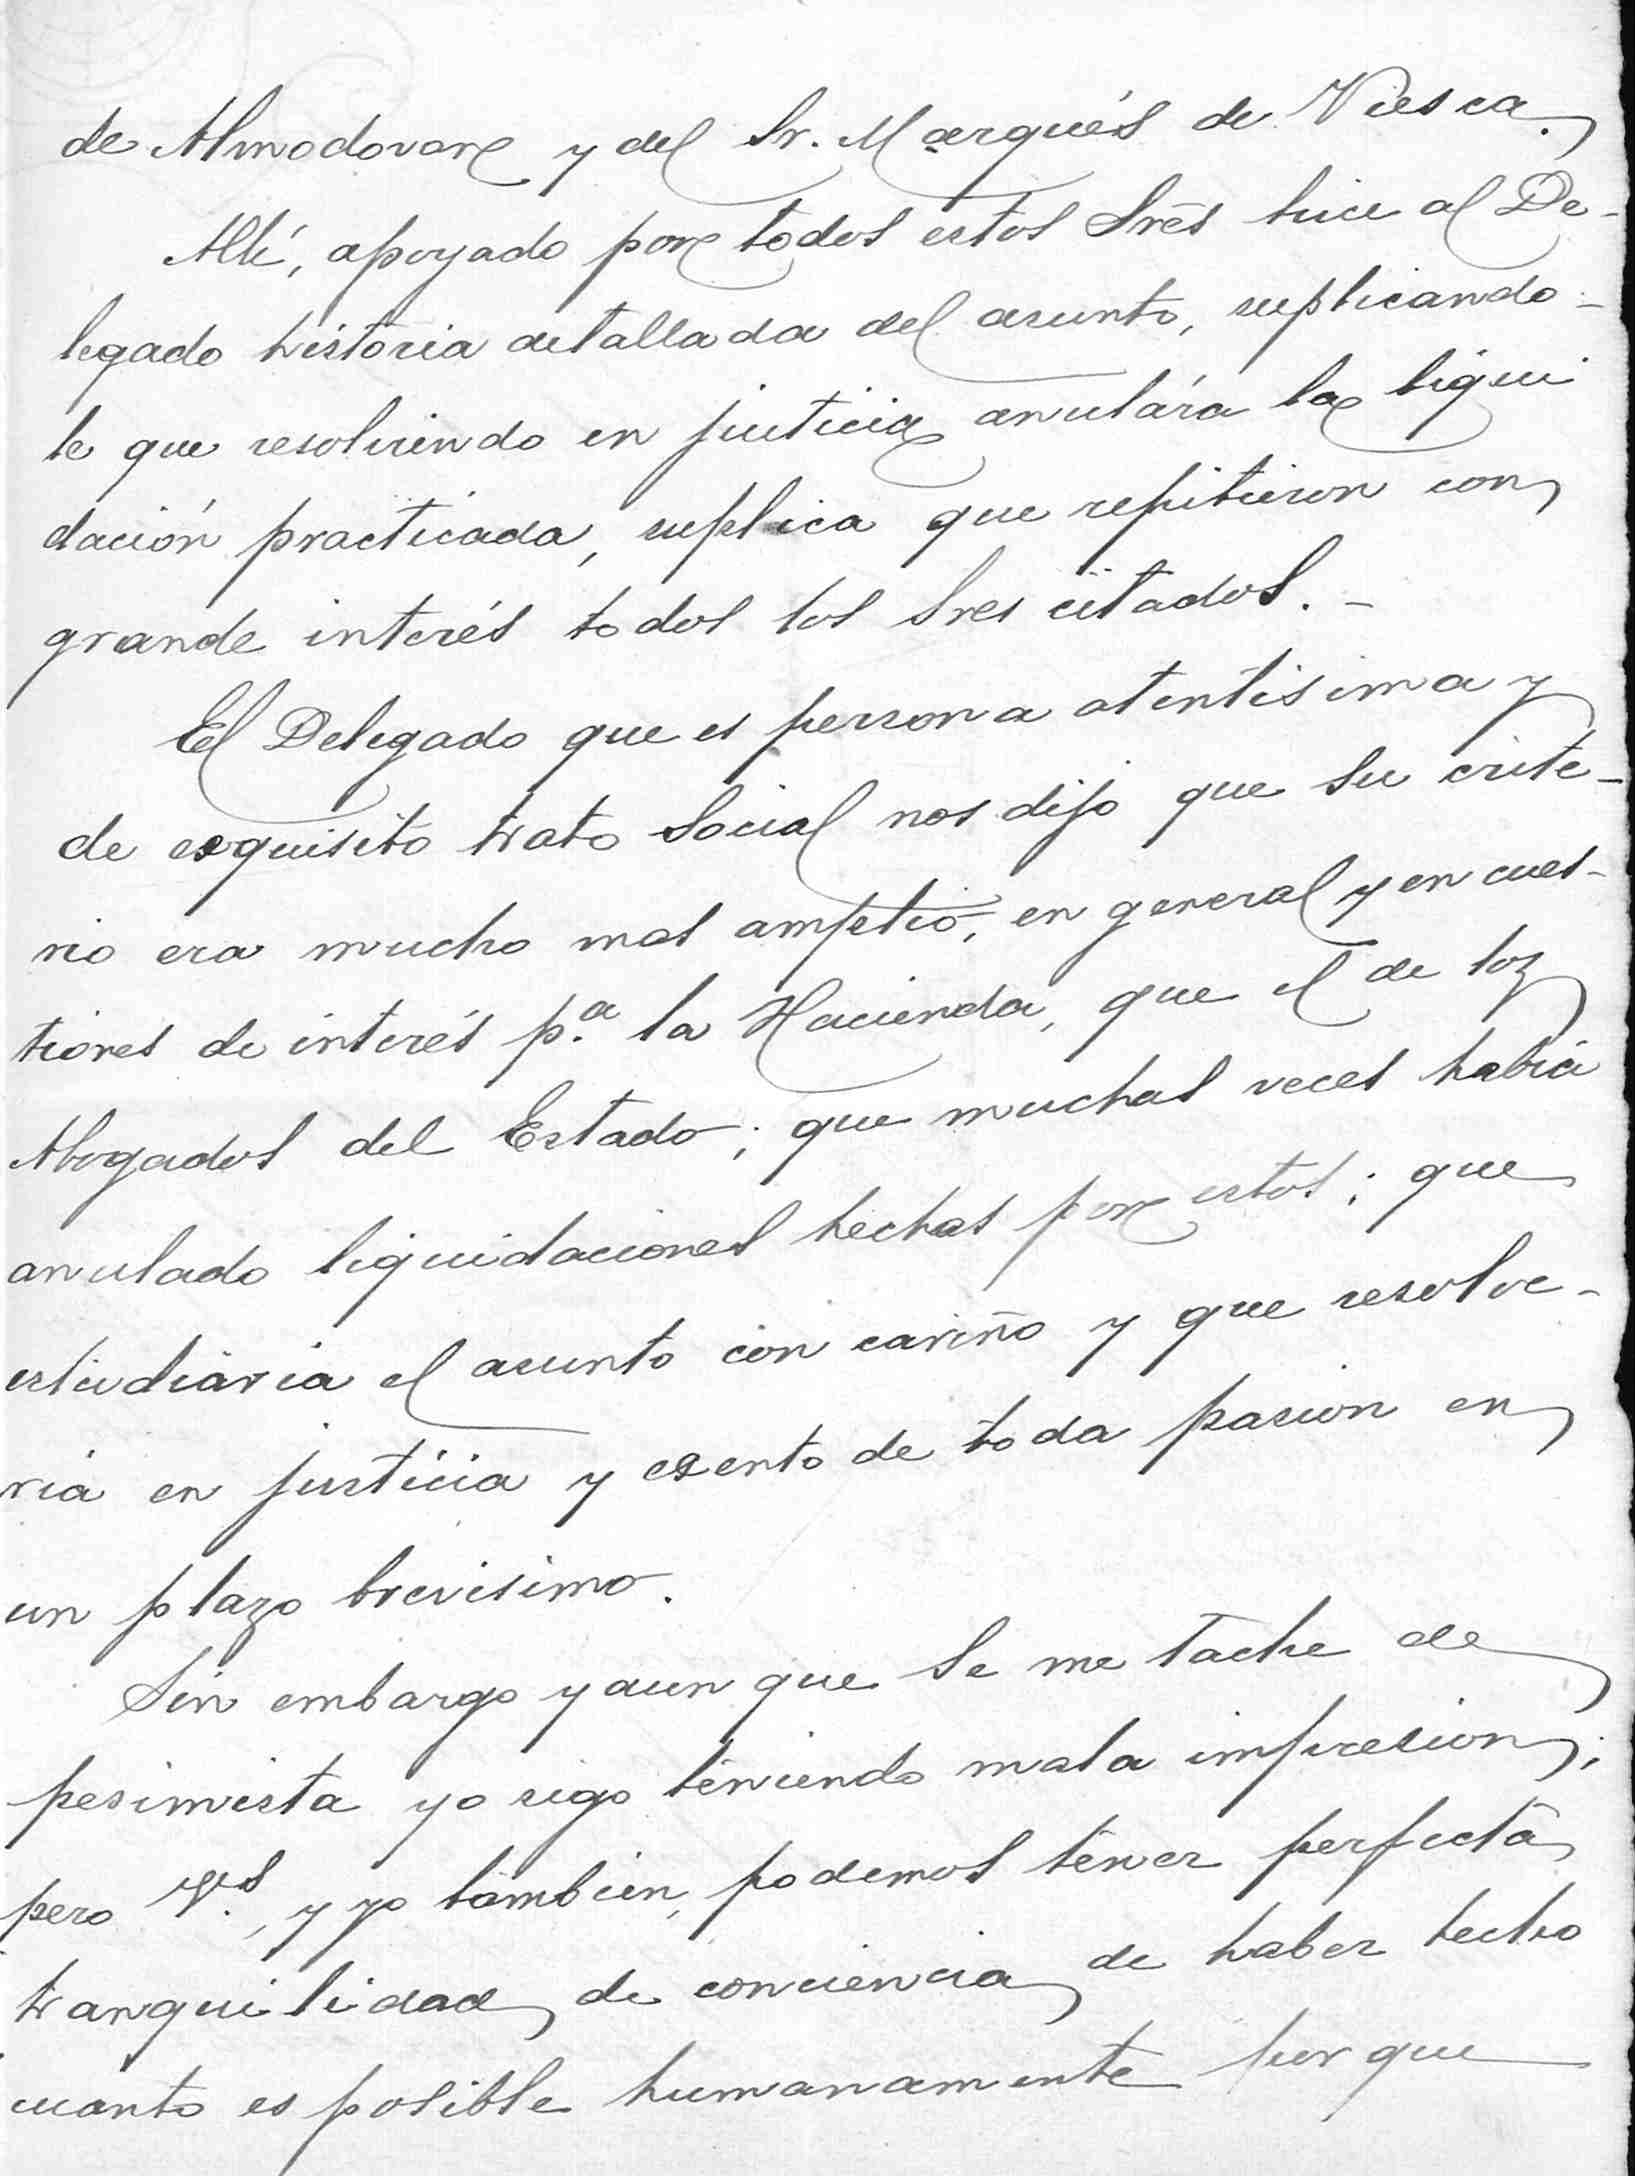 de Almodovar y del Sr. Marqués de Viesca.
Allí, apoyado por todos estos Sres hice al De-
legado historia detallada del asunto, suplicando-
le que resolviendo en justicia anulára la liqui
dación practicada, suplica que repitieron con
grande interés todos los Sres citados. -
El Delegado que es persona atentisima y
de esquisito trato social nos dijo que su crite-
rio era mucho mas amplio, en general y en cues-
tiones de interés p.ª la Hacienda, que el de los
Abogados del Estado; que muchas veces habia
anulado liquidaciones hechas por estos; que
estudiaria el asunto con cariño y que resolve-
ria en justicia y esento de toda pasion en
un plazo brevisimo.
Sin embargo y aun que se me tache de
pesimista yo sigo teniendo mala impresion;
pero Vds., y yo tambien, podemos tener perfecta
tranquilidad de conciencia de haber hecho
cuanto es posible humanamente por que